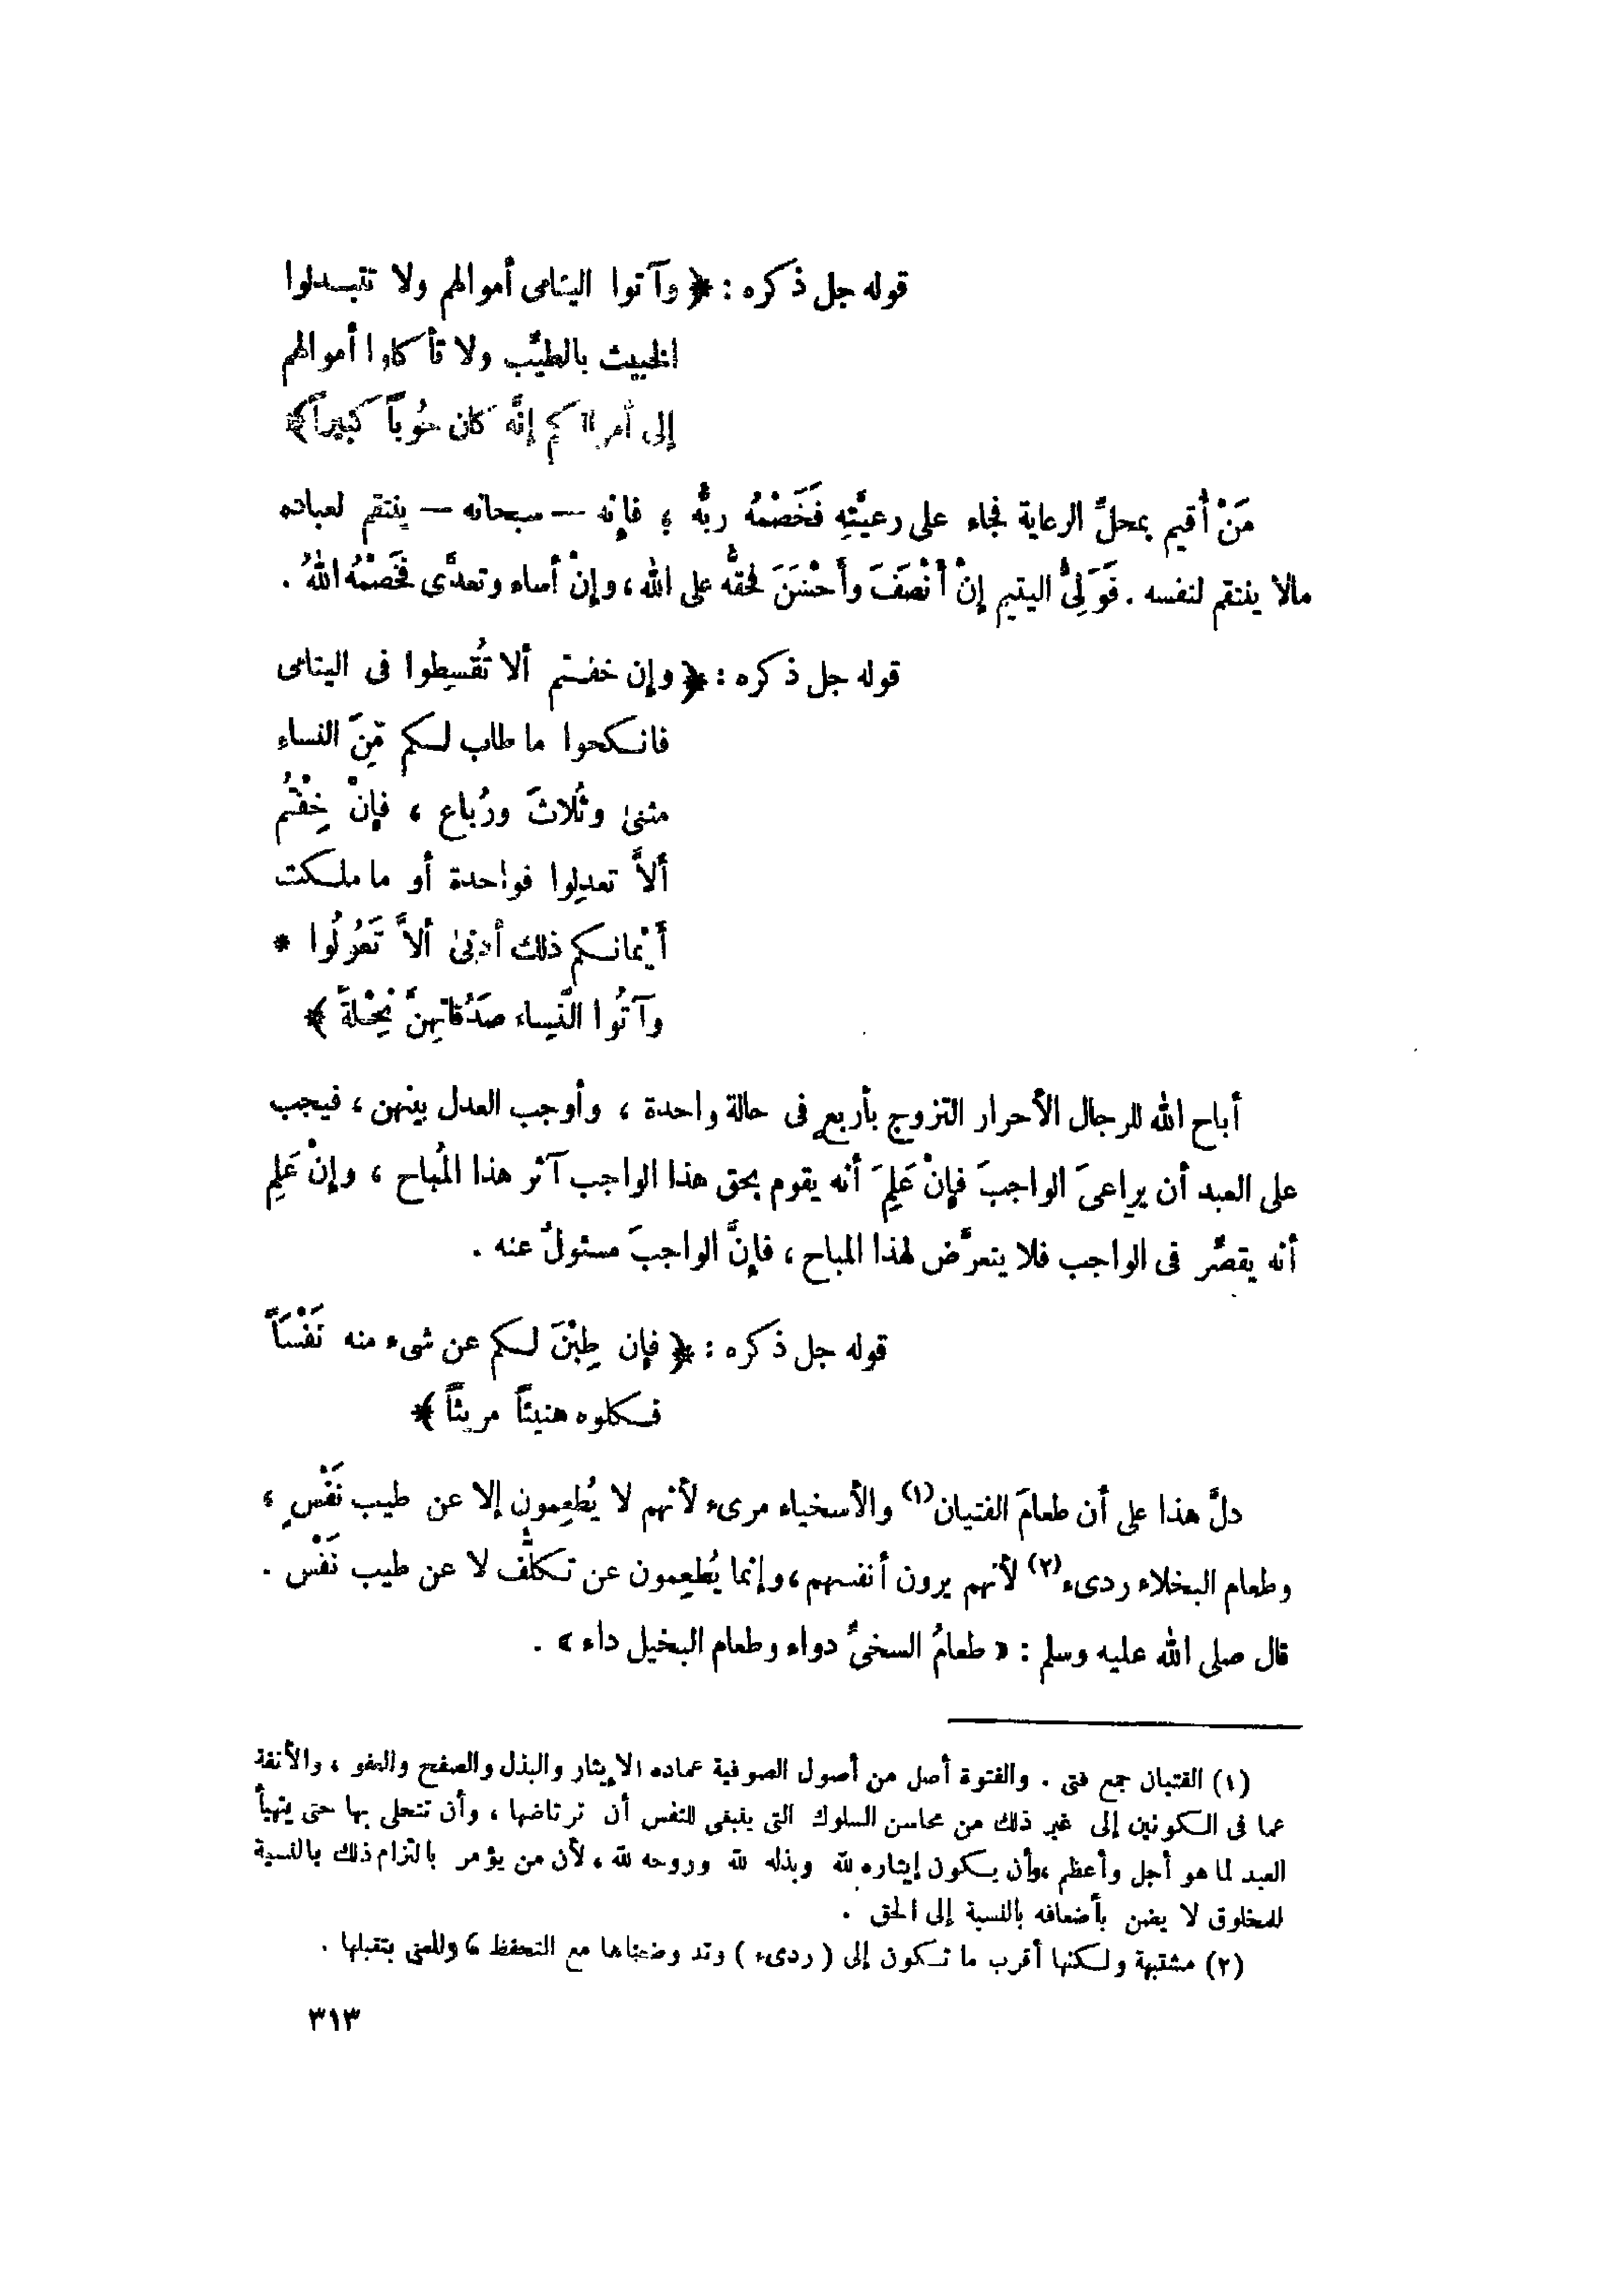 قوله جل ذكره : ﴿ وآتوا اليتامى أموالهم ولا تتبـدلوا
الخبيث بالطيِّب ولا تأكلوا أموالهم
إلى أموالكم إنَّه كان حُوباً كبيراً ﴾
مَنْ أقيم بمحلِّ الرعاية فجاء على رعيَّتِه فَخَصْمُه ربُّه ؛ فإنه — سبحانه — ينتقم لعباده
مالا ينتقم لنفسه . فَوَلِىُّ اليتيم إنْ أنْصَفَ وأَحْسَنَ فحقُّه على الله ، وإنْ أساء وتعدَّى فخَصْمُه اللهُ .
قوله جل ذكره : ﴿ وإن خفـتم ألا تُقسِطوا فى اليتامى
فانـكحوا ما طاب لـكم مِّنَ النساء
مثنىٰ وثُلاثَ ورُباع ، فإنْ خِفْتُم
ألاَّ تعدِلوا فواحدة أو ما ملـكت
أيْمانـكم ذلك أدنىٰ ألاَّ تَعُولُوا *
وآتُوا النِّساء صَدُقاتِهِنَّ نِحْلةً ﴾
أباح الله للرجال الأحرار التزوج بأربعٍ فى حالة واحدة ، وأوجب العدل بينهن ، فيجب
على العبد أن يراعىَ الواجبَ فإنْ عَلِمَ أنه يقوم بحق هذا الواجب آثر هذا المُباح ، وإنْ عَلِم
أنه يقصِّر فى الواجب فلا يتعرَّض لهذا المباح ، فإنَّ الواجبَ مسئولٌ عنه .
قوله جل ذكره : ﴿ فإن طِبْنَ لـكم عن شىء منه نَفْسَاً
فـكلوه هنيئاً مريئاً ﴾
دلَّ هذا على أن طعامَ الفتيان(١) والأسخياء مرىء لأنهم لا يُطعِمون إلا عن طيب نَفْسٍ ،
وطعام البخلاء ردىء(٢) لأنهم يرون أنفسهم ، وإنما يُطعِمون عن تـكلُّف لا عن طيب نَفْس .
قال صلى الله عليه وسلم : « طعامُ السخىِّ دواء وطعام البخيل داء » .
(١) الفتيان جمع فتى . والفتوة أصل من أصول الصوفية عماده الإيثار والبذل والصفح والعفو ، والأنفة
عما فى الـكونين إلى غير ذلك من محاسن السلوك التى ينبغى للنفس أن ترتاضها ، وأن تتحلى بها حتى يتهيأ
العبد لما هو أجل وأعظم ، وأن يـكون إيثاره لله وبذله لله وروحه لله ، لأن من يؤمر بالتزام ذلك بالنسبة
للمخلوق لا يضن بأضعافه بالنسبة إلى الحق .
(٢) مشتبهة ولـكنها أقرب ما تـكون إلى ( ردىء ) وقد وضعناها مع التحفظ ، والمعنى يتقبلها .
٣١٣